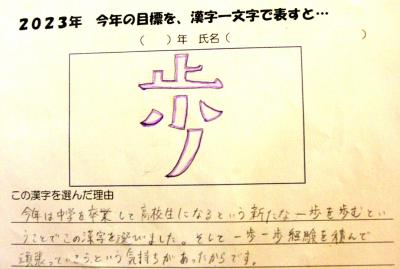 2023年 今年の目標を、漢字一文字で表すと…
( )年 氏名( )
歩
この漢字を選んだ理由
今年は中学を卒業して高校生になるという新たな一歩を歩むとい
うことでこの漢字を選びました。そして一歩一歩経験を積んで
頑張っていこうという気持ちがあったからです。